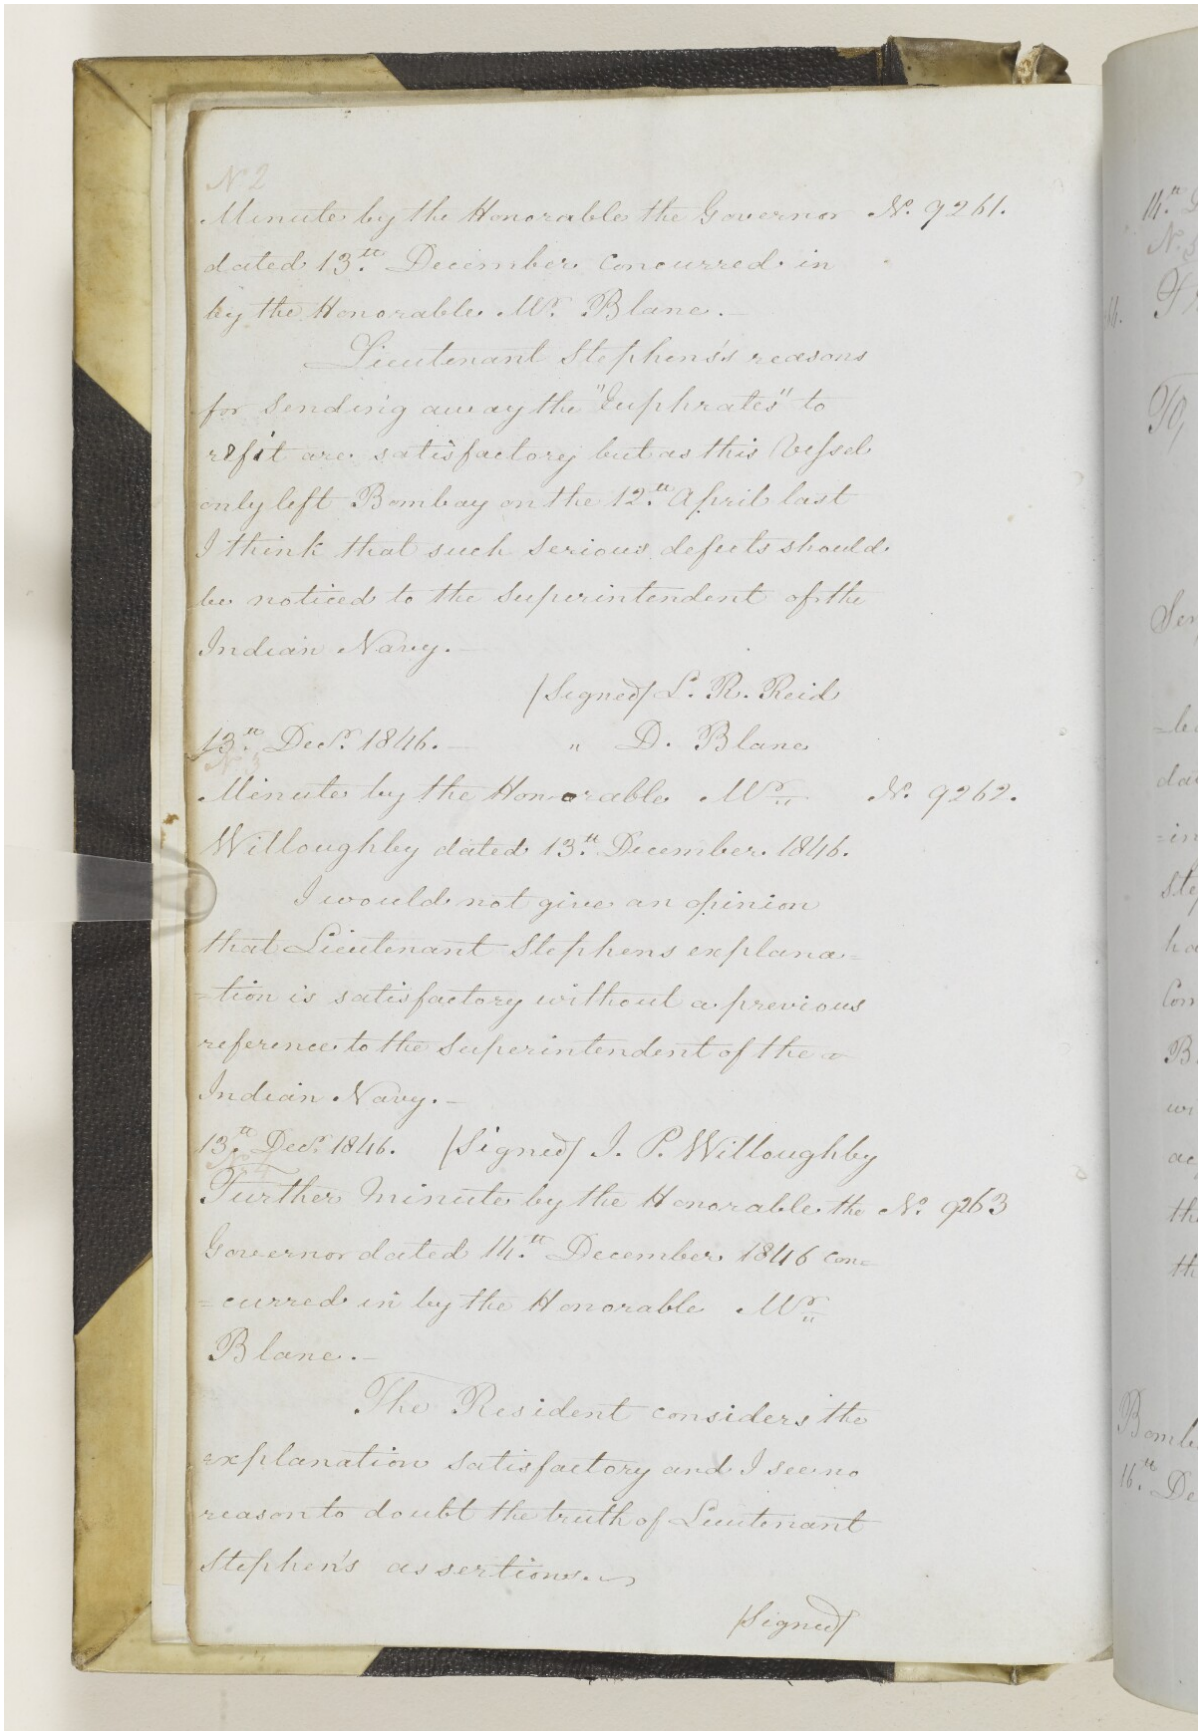 N 2
Minute by the Honorable the Governor No. 9261.
dated 13.th December concurred in
by the Honorable Mr. Blane.—
Lieutenant Stephens's reasons
for sending away the "Euphrates" to
refit are satisfactory but as this Vessel
only left Bombay on the 12.th April last
I think that such serious defects should
be noticed to the Superintendent of the
Indian Navy.—
/Signed/ L. R. Reid
13.th Decr. 1846.— " D. Blane
N 3
Minute by the Honorable Mr. No. 9262.
Willoughby dated 13.th December 1846.
I would not give an opinion
that Lieutenant Stephens explana=
=tion is satisfactory without a previous
reference to the Superintendent of the
Indian Navy.—
13.th Decr. 1846. /Signed/ J. P. Willoughby
Further Minute by the Honorable the No. 9263
Governor dated 14.th December 1846 con=
=curred in by the Honorable Mr.
Blane.—
The Resident considers the
explanation satisfactory and I see no
reason to doubt the truth of Lieutenant
Stephen's assertions.
/Signed/
14.th
To,
=in
Bomb
16.th De